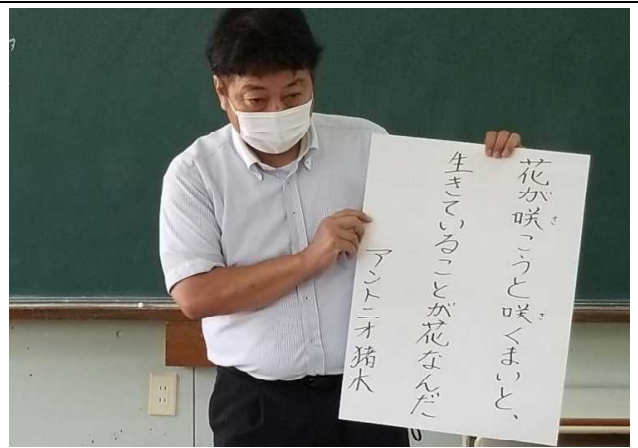 花が咲こうと咲くまいと、
生きていることが花なんだ
アントニオ猪木